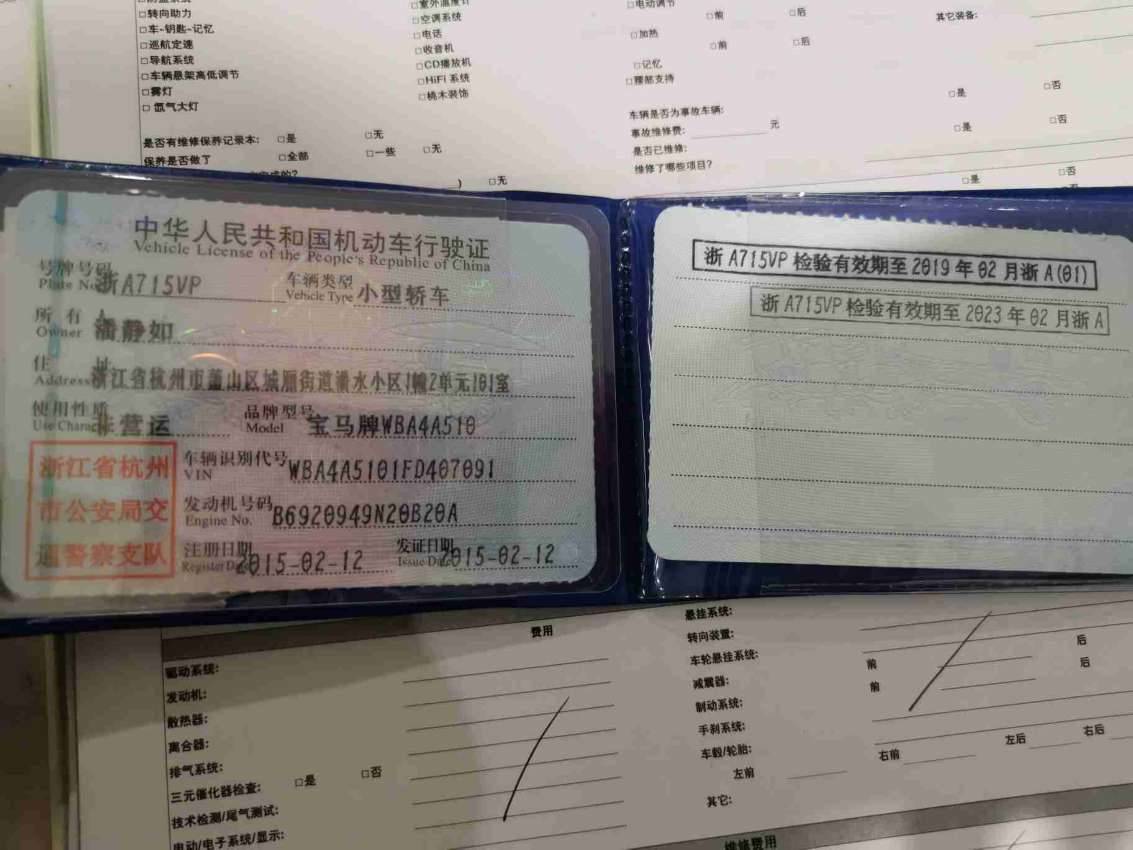 □转向助力
□车-钥匙-记忆
□巡航定速
□导航系统
□车辆悬架高低调节
□雾灯
□ 氙气大灯
□室外温度计
□空调系统
□电话
□收音机
□CD播放机
□HiFi 系统
□桃木装饰
□电动调节
□前 □后
□加热
□前 □后
□记忆
□腰部支持
其它装备:
是否有维修保养记录本: □是 □无
保养是否做了 □全部 □一些 □无
) □无
车辆是否为事故车辆: □是 □否
事故维修费: 元
是否已维修: □是 □否
维修了哪些项目?
□是 □否
中华人民共和国机动车行驶证
Vehicle License of the People's Republic of China
号牌号码 浙A715VP 车辆类型 小型轿车
Plate No. Vehicle Type
所有人 潘静如
Owner
住址 浙江省杭州市萧山区城厢街道潇水小区1幢2单元101室
Address
使用性质 非营运 品牌型号 宝马牌WBA4A510
Use Character Model
浙江省杭州
市公安局交
通警察支队
车辆识别代号 WBA4A5101FD407091
VIN
发动机号码 B6920949N20B20A
Engine No.
注册日期 2015-02-12 发证日期 2015-02-12
Register Date Issue Date
浙 A715VP 检验有效期至 2019 年 02 月浙 A(01)
浙 A715VP 检验有效期至 2023 年 02 月浙 A
费用
驱动系统:
发动机:
散热器:
离合器:
排气系统:
三元催化器检查: □是 □否
技术检测/尾气测试:
电动/电子系统/显示:
悬挂系统:
转向装置:
车轮悬挂系统: 前 后
减震器: 前 后
制动系统:
手刹系统:
车毂/轮胎: 右前 左后 右后
左前
其它:
维修费用